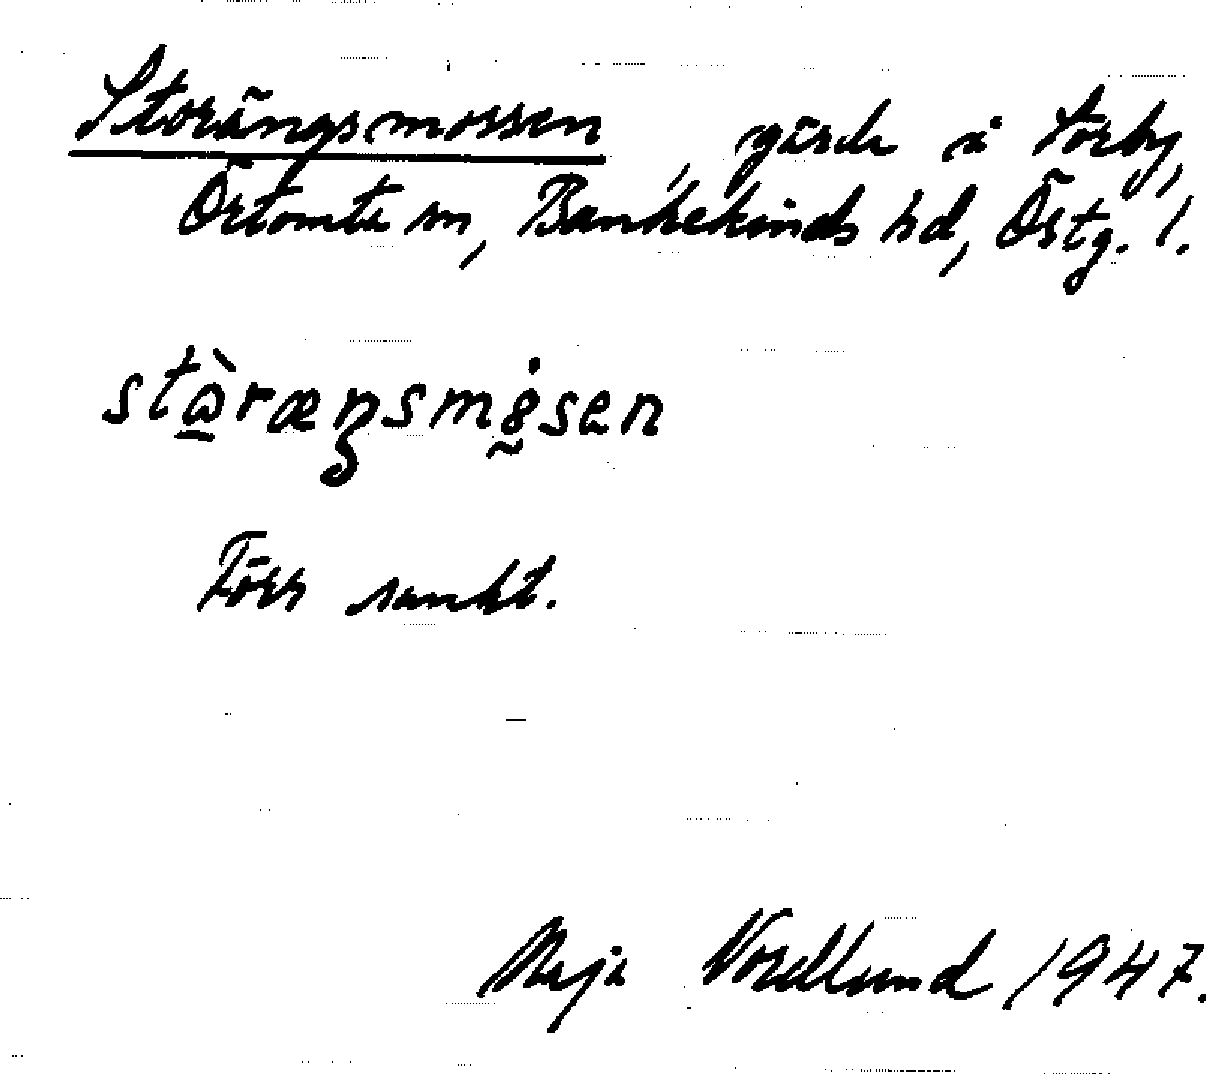 Storängsmossen, gärde å Torby,
Örtomta sn, Bankekinds hd, Östg. l.
stὼræŋsmȯ̰sen
Förr sankt.
Maja Nordlund 1947.